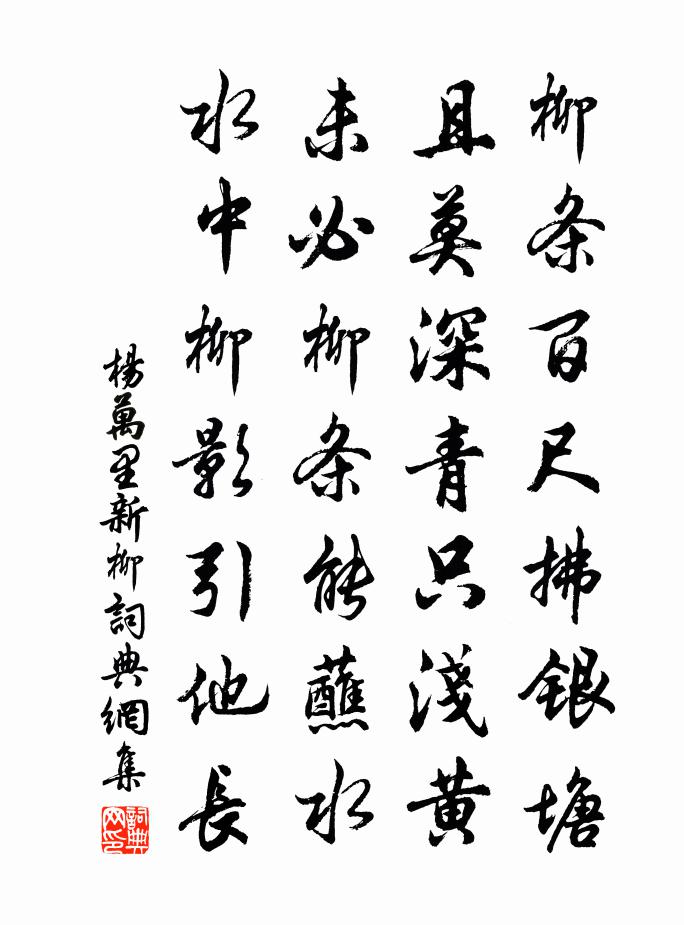 柳条百尺拂銀塘
且莫深青只淺黄
未必柳条能蘸水
水中柳影引他長
楊萬里新柳詞典網集
詞典网印